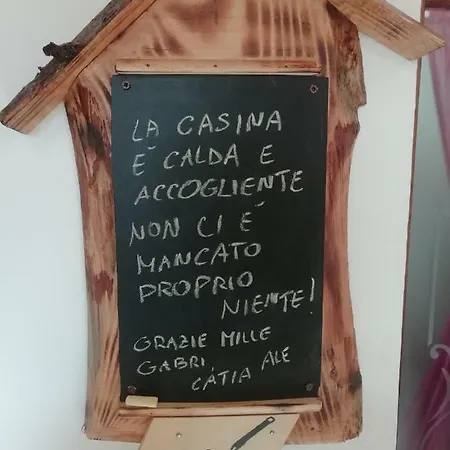 LA CASINA
É CALDA E
ACCOGLIENTE
NON CI É
MANCATO
PROPRIO
NIENTE!
GRAZIE MILLE
GABRI
CÁTIA ALE